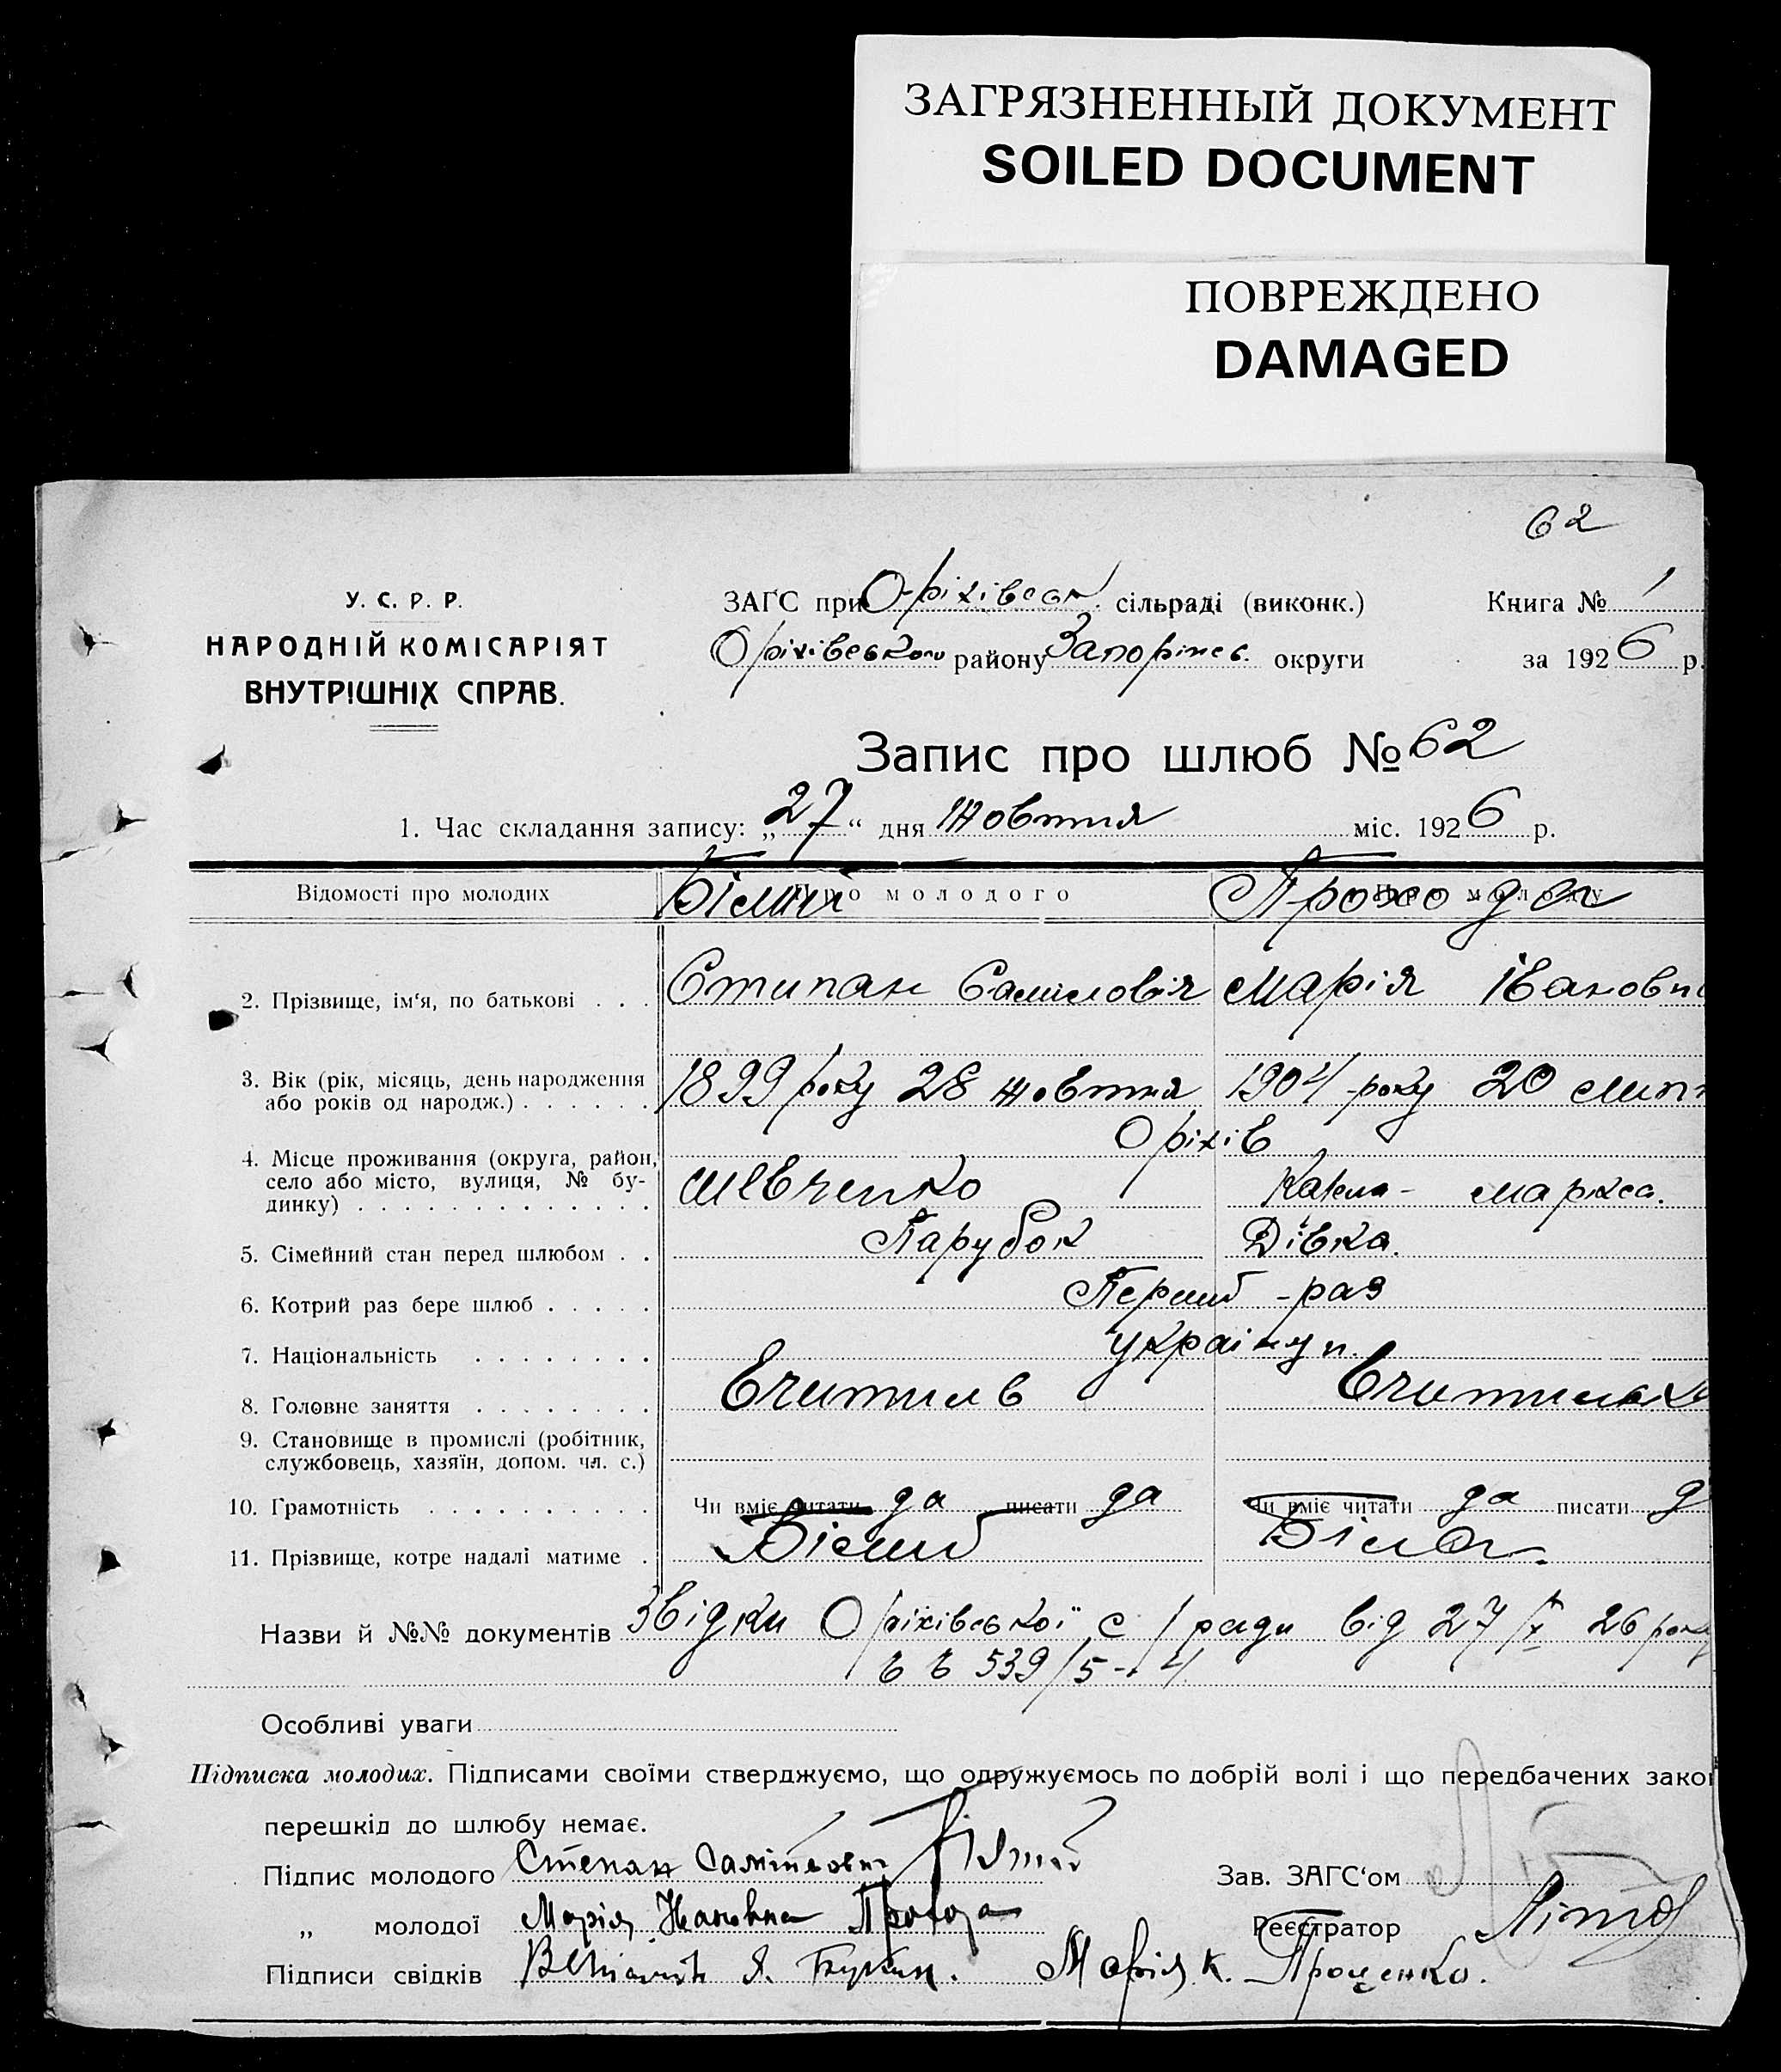 ЗАГРЯЗНЕННЫЙ ДОКУМЕНТ
SOILED DOCUMENT
ПОВРЕЖДЕНО
DAMAGED
62
У. С. Р. Р.
НАРОДНІЙ КОМІСАРІЯТ
ВНУТРІШНІХ СПРАВ.
ЗАГС при Оріхівськ. сільраді (виконк.) Книга № 1
Оріхівського району Запоріжс. округи за 1926 р.
Запис про шлюб № 62
1. Час складання запису: „27“ дня жовтня міс. 1926 р.
Відомості про молодих Про молодого Про молоду
Білий Проходa
2. Прізвище, ім‘я, по батькові . . . Стипан Самiлович Марія Івановн
3. Вік (рік, місяць, день народження
або років од народж.) . . . . . . 1899 року 28 жовтня 1904 року 20 лип
Оріхів
4. Місце проживання (округа, район,
село або місто, вулиця, № бу-
динку) . . . . . . . . . . . . . Шевченко маркса.
5. Сімейний стан перед шлюбом . . Парубок Дівка.
6. Котрий раз бере шлюб . . . . . Перший - раз
7. Національність . . . . . . . . українци.
8. Головне заняття . . . . . . . . Вчитиль Вчитилька
9. Становище в промислі (робітник,
службовець, хазяїн, допом. чл. с.)
10. Грамотність . . . . . . . . . . Чи вміє читати да писати да Чи вміє читати да писати д
11. Прізвище, котре надалі матиме . Білий Біла.
Назви й №№ документів Звідки Оріхівської с/ради від 27/X 26 року
539/5-4
Особливі уваги
Підписка молодих. Підписами своїми стверджуємо, що одружуємось по добрій волі і що передбачених зако
перешкід до шлюбу немає.
Підпис молодого Степан Самійлович Білий Зав. ЗАГС‘ом
„ молодої Марія Ивановна Прохода Реєстратор
Підписи свідків Марія К. Проценко.